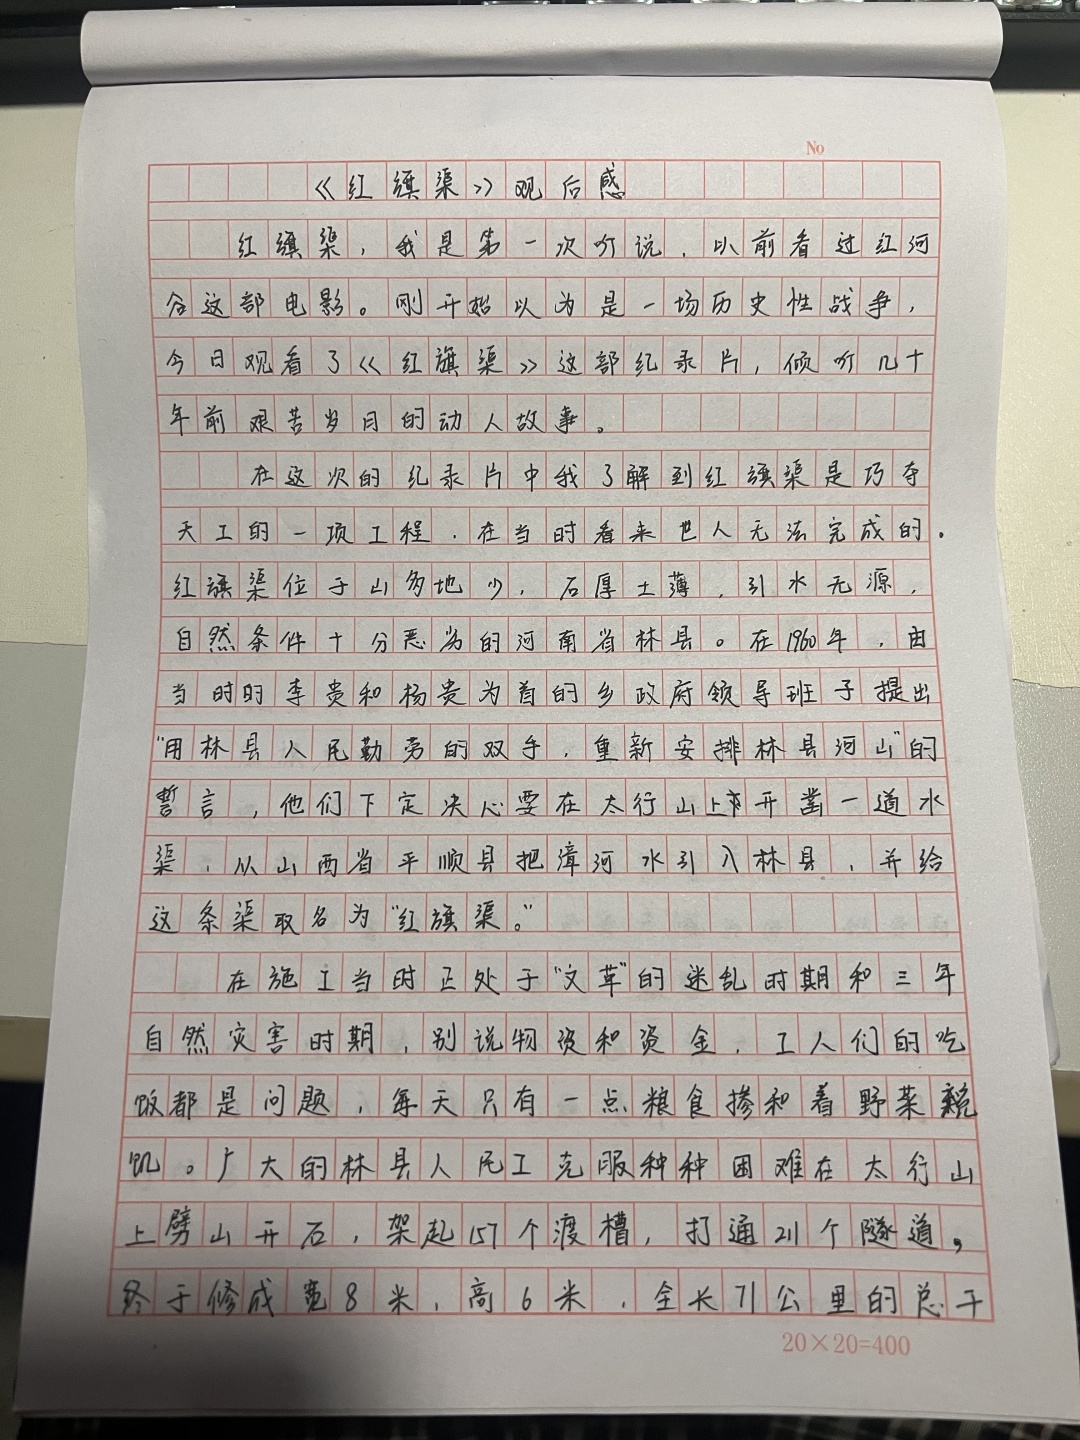 No
《红旗渠》观后感
红旗渠，我是第一次听说，以前看过红河
谷这部电影。刚开始以为是一场历史性战争，
今日观看了《红旗渠》这部纪录片，倾听几十
年前艰苦岁月的动人故事。
在这次的纪录片中我了解到红旗渠是巧夺
天工的一项工程，在当时看来也人无法完成的。
红旗渠位于山多地少，石厚土薄，引水无源，
自然条件十分恶劣的河南省林县。在1960年，由
当时的李贵和杨贵为首的乡政府领导班子提出
"用林县人民勤劳的双手，重新安排林县河山"的
誓言，他们下定决心要在太行山上开凿一道水
渠，从山西省平顺县把漳河水引入林县，并给
这条渠取名为"红旗渠。"
在施工当时正处于"文革"的迷乱时期和三年
自然灾害时期，别说物资和资金，工人们的吃
饭都是问题，每天只有一点粮食掺和着野菜
饥。广大的林县人民工克服种种困难在太行山
上劈山开石，架起157个渡槽，打通211个隧道，
终于修成宽8米，高6米，全长71公里的总干
20×20=400